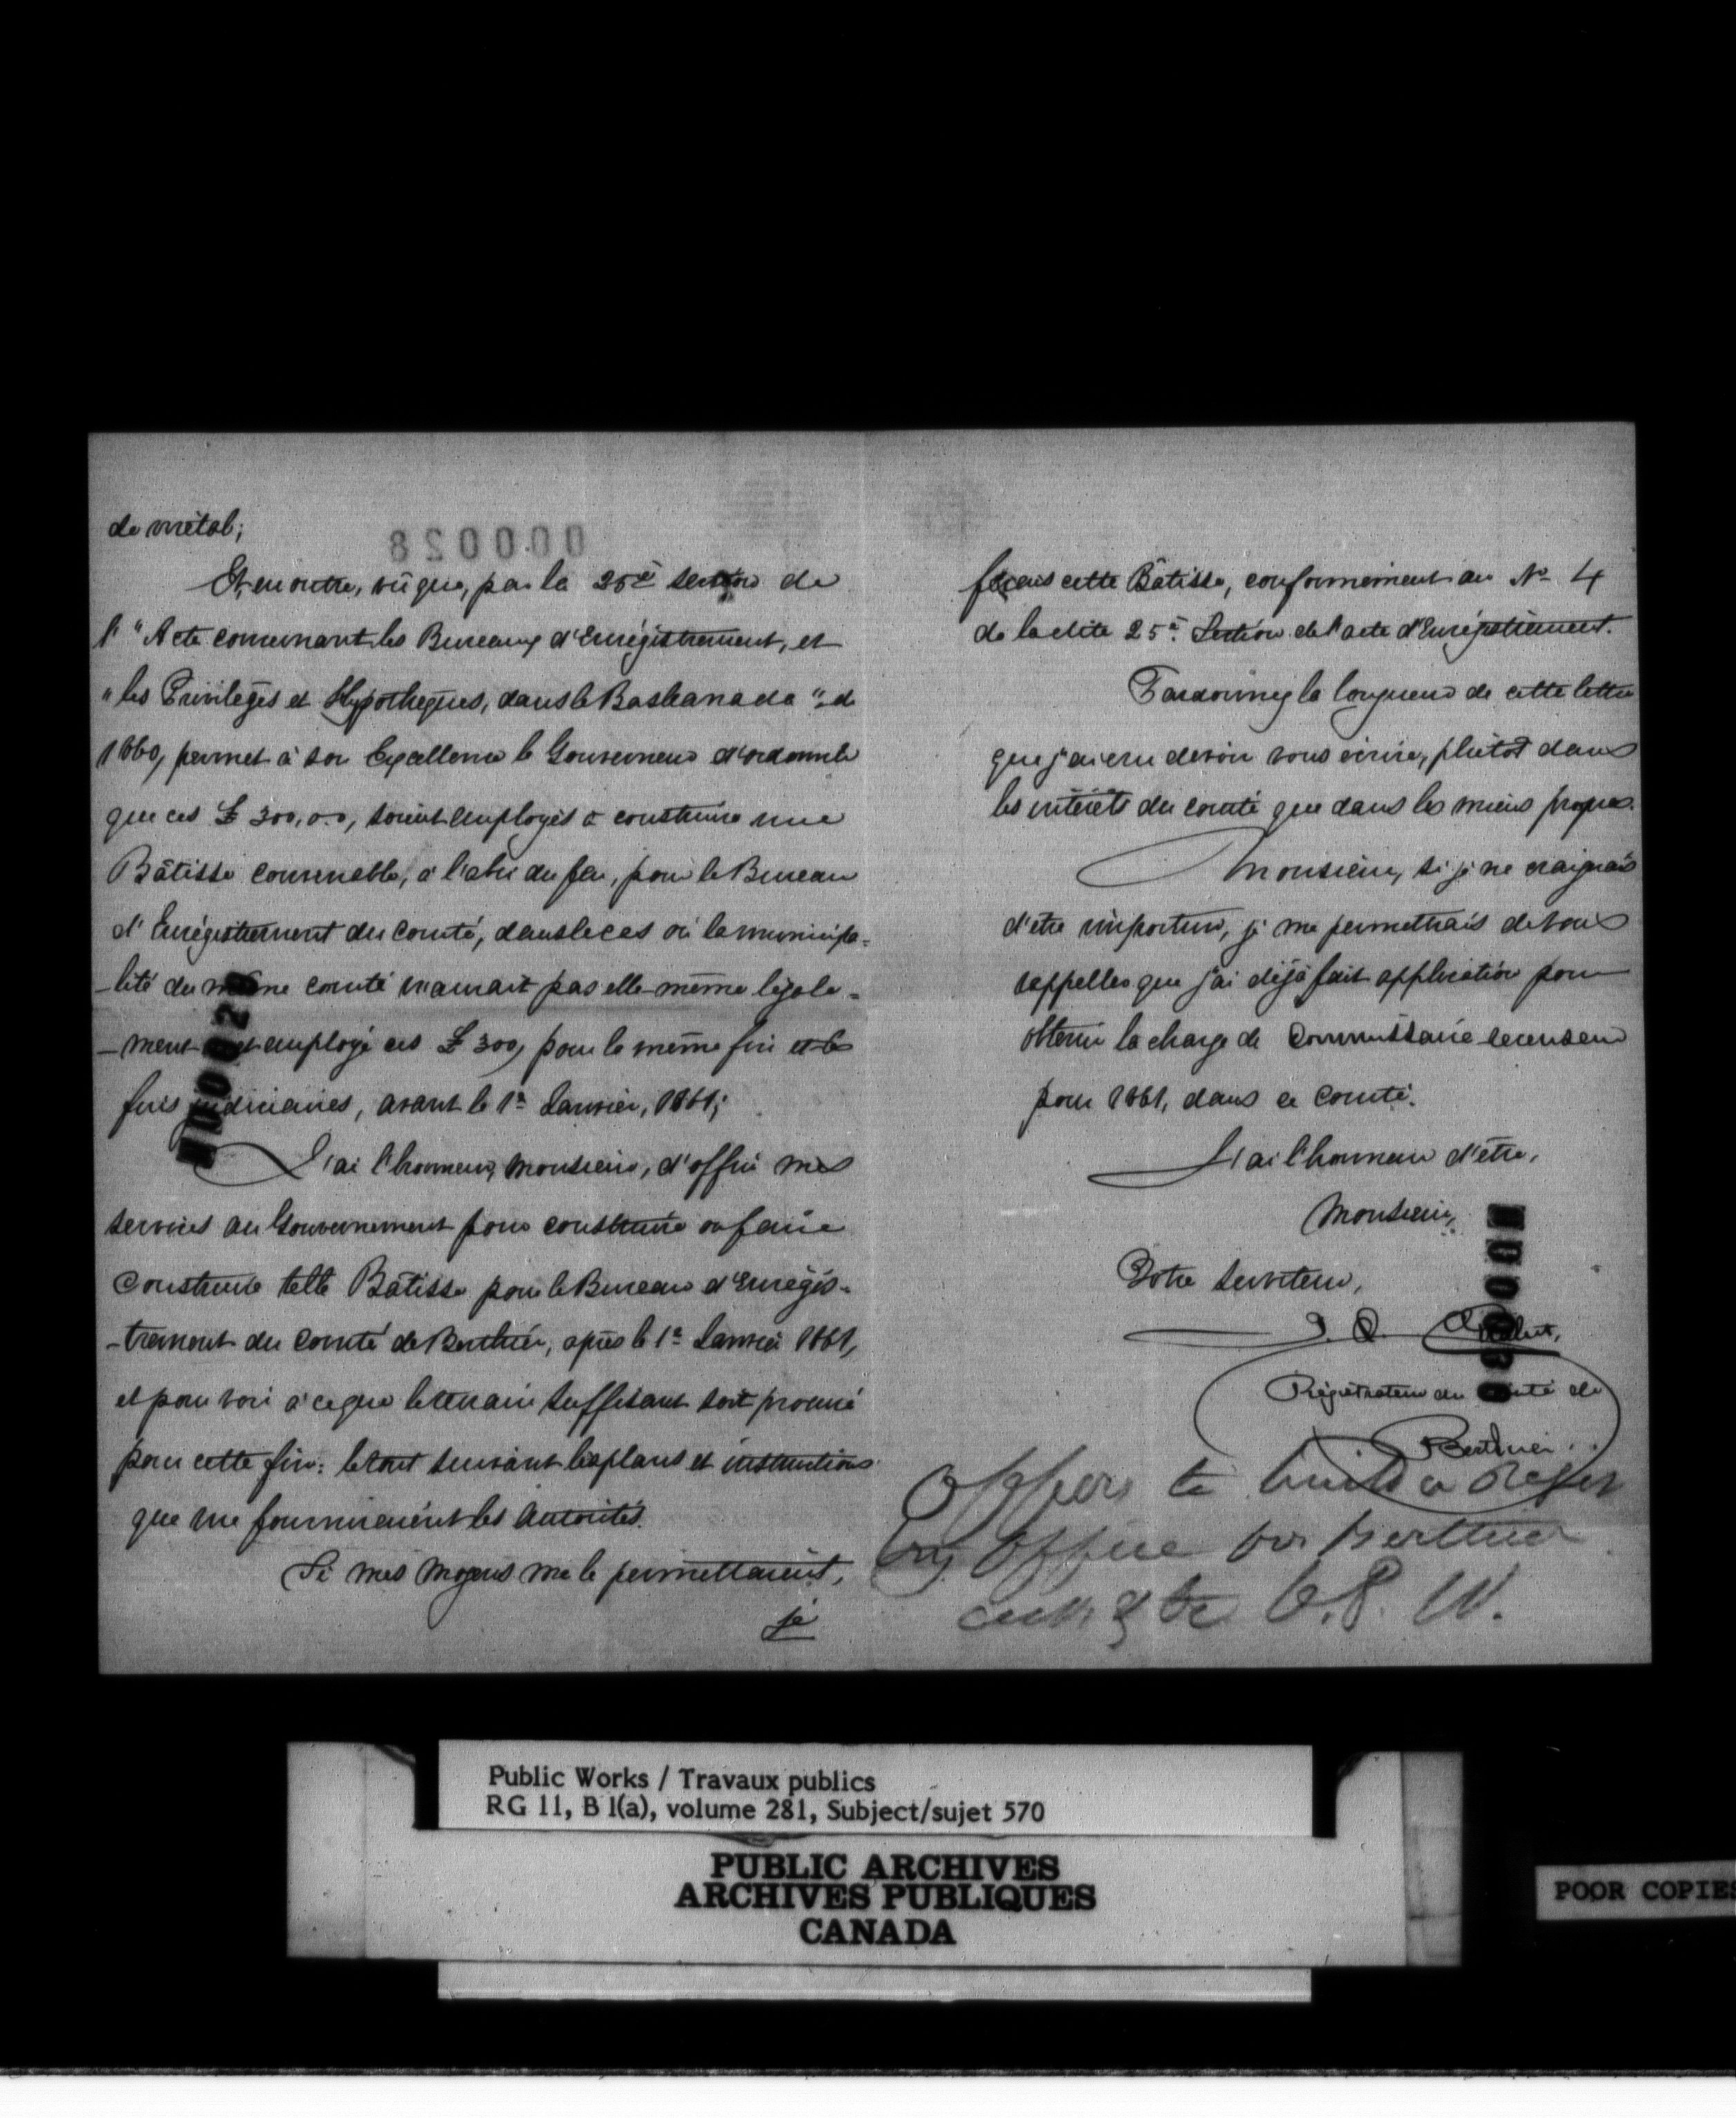 de métal;
000028
Et, en outre, vû que, par la 25è. section de
l' "Acte concernant les Bureaux d'Enrégistrement, et
"les Privilèges et Hypothèques, dans le Bas Canada", de
1860, permet à Son Excellence le Gouverneur d'ordonner
que ces £ 300,0.0, soient employés à construire une
Bâtisse convenable, à l'abri du feu, pour le Bureau
d'Enrégistrement du Comté, dans le cas où la municipa=
-lité du même comté n'aurait pas elle-même légale=
-ment et employé ces £ 300, pour la même fin et les
fins judiciaires, avant le 1er Janvier, 1861;
J'ai l'honneur, Monsieur, d'offrir mes
services au Gouvernement pour construire ou faire
construire telle Bâtisse pour le Bureau d'Enrégis-
-trement du Comté de Berthier, après le 1er Janvier 1861,
et pour voir à ce que le terrain suffisant soit procuré
pour cette fin: le tout suivant les plans et instructions
que me fourniraient les autorités.
Si mes moyens me le permettaient,
je
ferais cette Bâtisse, conformément au No 4
de la dite 25e. Section de l'acte d'Enrégistrement.
Pardonnez la longueur de cette lettre
que j'ai cru devoir vous écrire, plutôt dans
les intérêts du comté que dans les miens propres.
Monsieur, si je ne craignais
d'être importun, je me permettrais de vous
rappeller que j'ai déjà fait application pour
obtenir la charge de Commissaire-recenseur
pour 1861, dans ce Comté.
J'ai l'honneur d'être,
Monsieur,
Votre Serviteur,
J. O.
Régistrateur du Comté de
Berthier.
Offers to build a Regis
try Office for Berthier
B. P. W.
Public Works / Travaux publics
RG 11, B 1(a), volume 281, Subject/sujet 570
PUBLIC ARCHIVES
ARCHIVES PUBLIQUES
CANADA
POOR COPIES